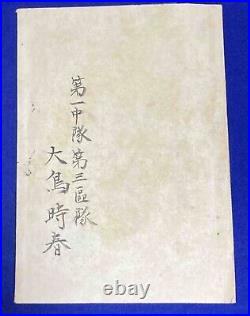 第一中隊第三區隊
大鳥時春